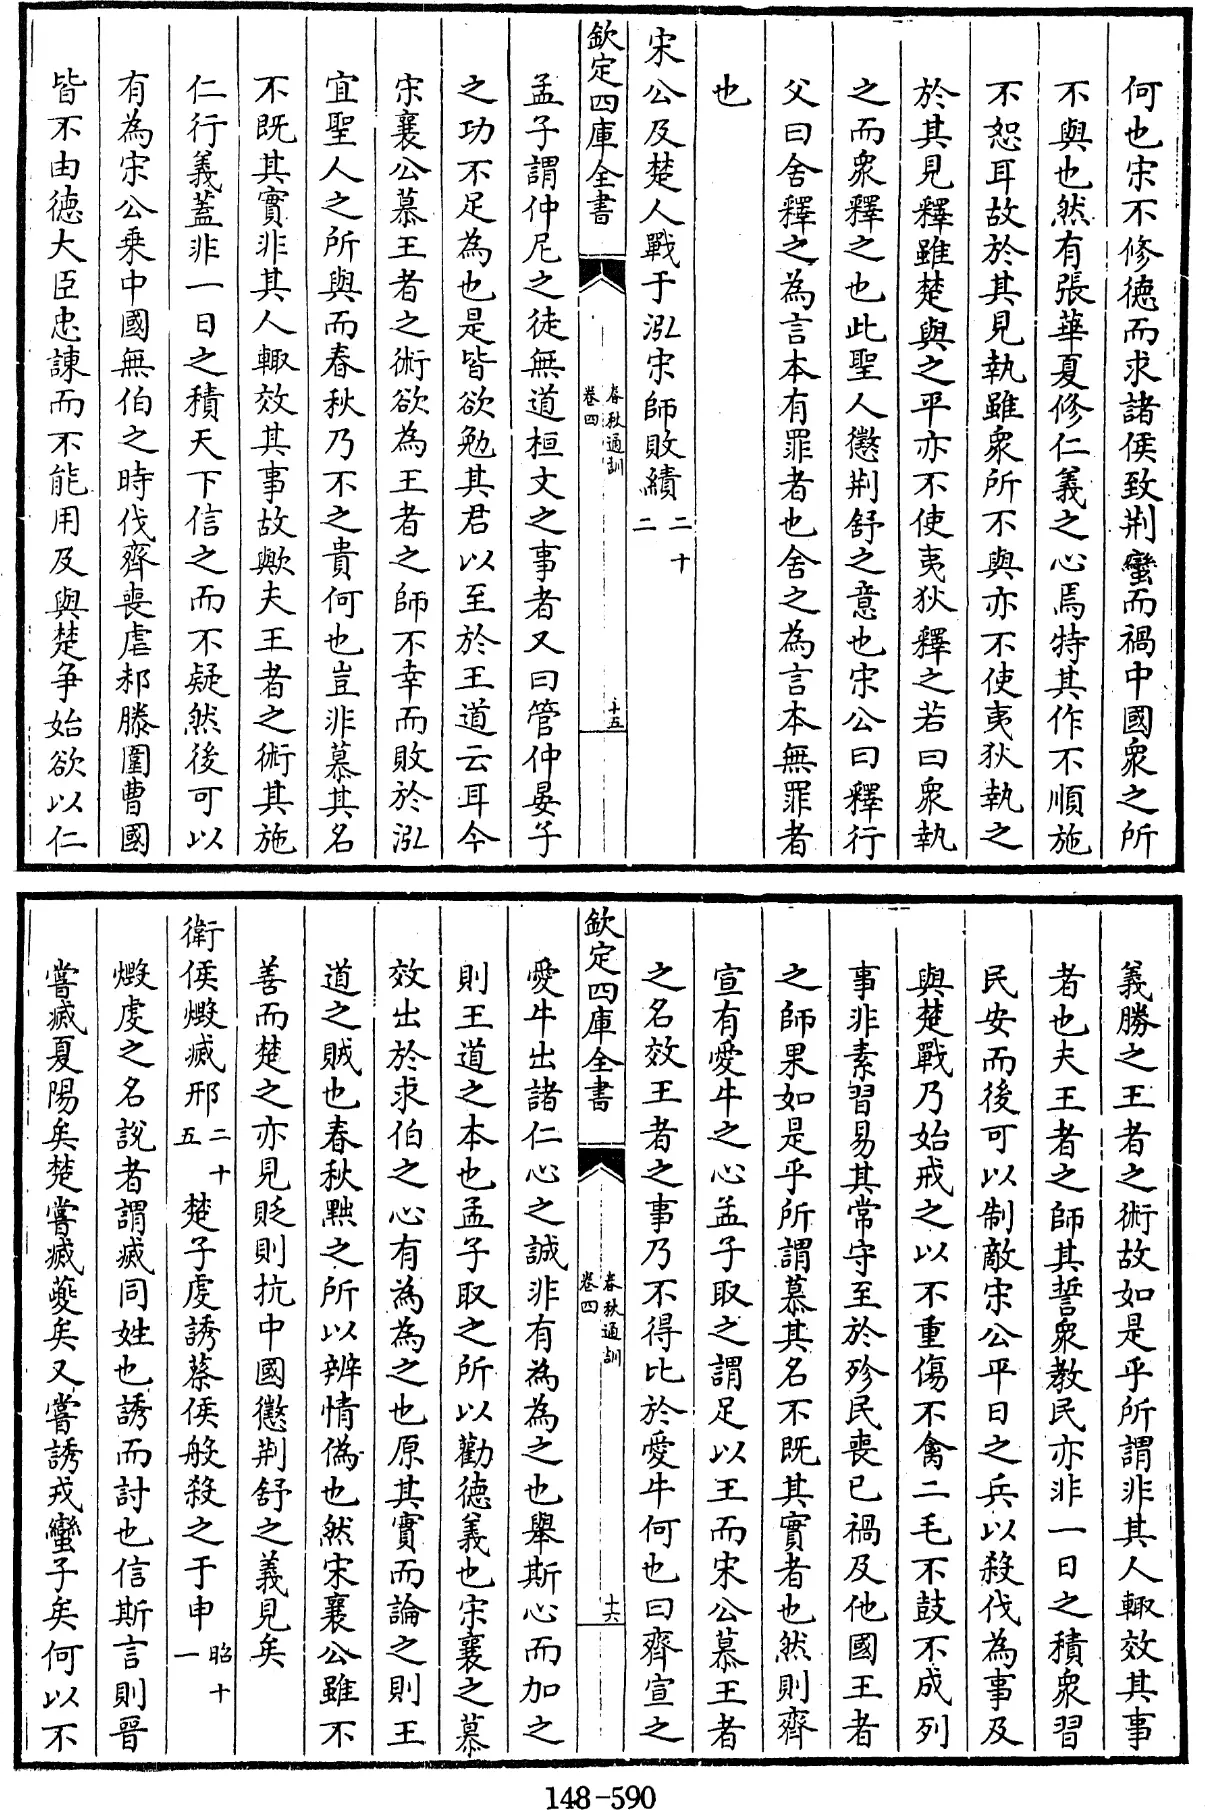 何也宋不修德而求諸侯致荆蠻而禍中國衆之所
不與也然有張華夏修仁義之心焉特其作不順施
不恕耳故於其見執雖衆所不與亦不使夷狄執之
於其見釋雖楚與之平亦不使夷狄釋之若曰衆執
之而衆釋之也此聖人懲荆舒之意也宋公曰釋行
父曰舍釋之為言本有罪者也舍之為言本無罪者
也
宋公及楚人戰于泓宋師敗績二十二
欽定四庫全書
春秋通訓
卷四
十五
孟子謂仲尼之徒無道桓文之事者又曰管仲晏子
之功不足為也是皆欲勉其君以至於王道云耳今
宋襄公慕王者之術欲為王者之師不幸而敗於泓
宜聖人之所與而春秋乃不之貴何也豈非慕其名
不既其實非其人輙效其事故歟夫王者之術其施
仁行義蓋非一日之積天下信之而不疑然後可以
有為宋公乗中國無伯之時伐齊喪虐邾滕圍曹國
皆不由徳大臣忠諫而不能用及與楚爭始欲以仁
義勝之王者之術故如是乎所謂非其人輙效其事
者也夫王者之師其誓衆教民亦非一日之積衆習
民安而後可以制敵宋公平日之兵以殺伐為事及
與楚戰乃始戒之以不重傷不禽二毛不鼓不成列
事非素習易其常守至於殄民喪已禍及他國王者
之師果如是乎所謂慕其名不既其實者也然則齊
宣有愛牛之心孟子取之謂足以王而宋公慕王者
之名效王者之事乃不得比於愛牛何也曰齊宣之
欽定四庫全書
春秋通訓
卷四
十六
愛牛出諸仁心之誠非有為為之也舉斯心而加之
則王道之本也孟子取之所以勸德義也宋襄之慕
效出於求伯之心有為為之也原其實而論之則王
道之賊也春秋黜之所以辨情偽也然宋襄公雖不
善而楚之亦見貶則抗中國懲荆舒之義見矣
衛侯燬滅邢二十五楚子虔誘蔡侯般殺之于申昭十一
燬虔之名説者謂滅同姓也誘而討也信斯言則晉
嘗滅夏陽矣楚嘗滅夔矣又嘗誘戎蠻子矣何以不
148-590